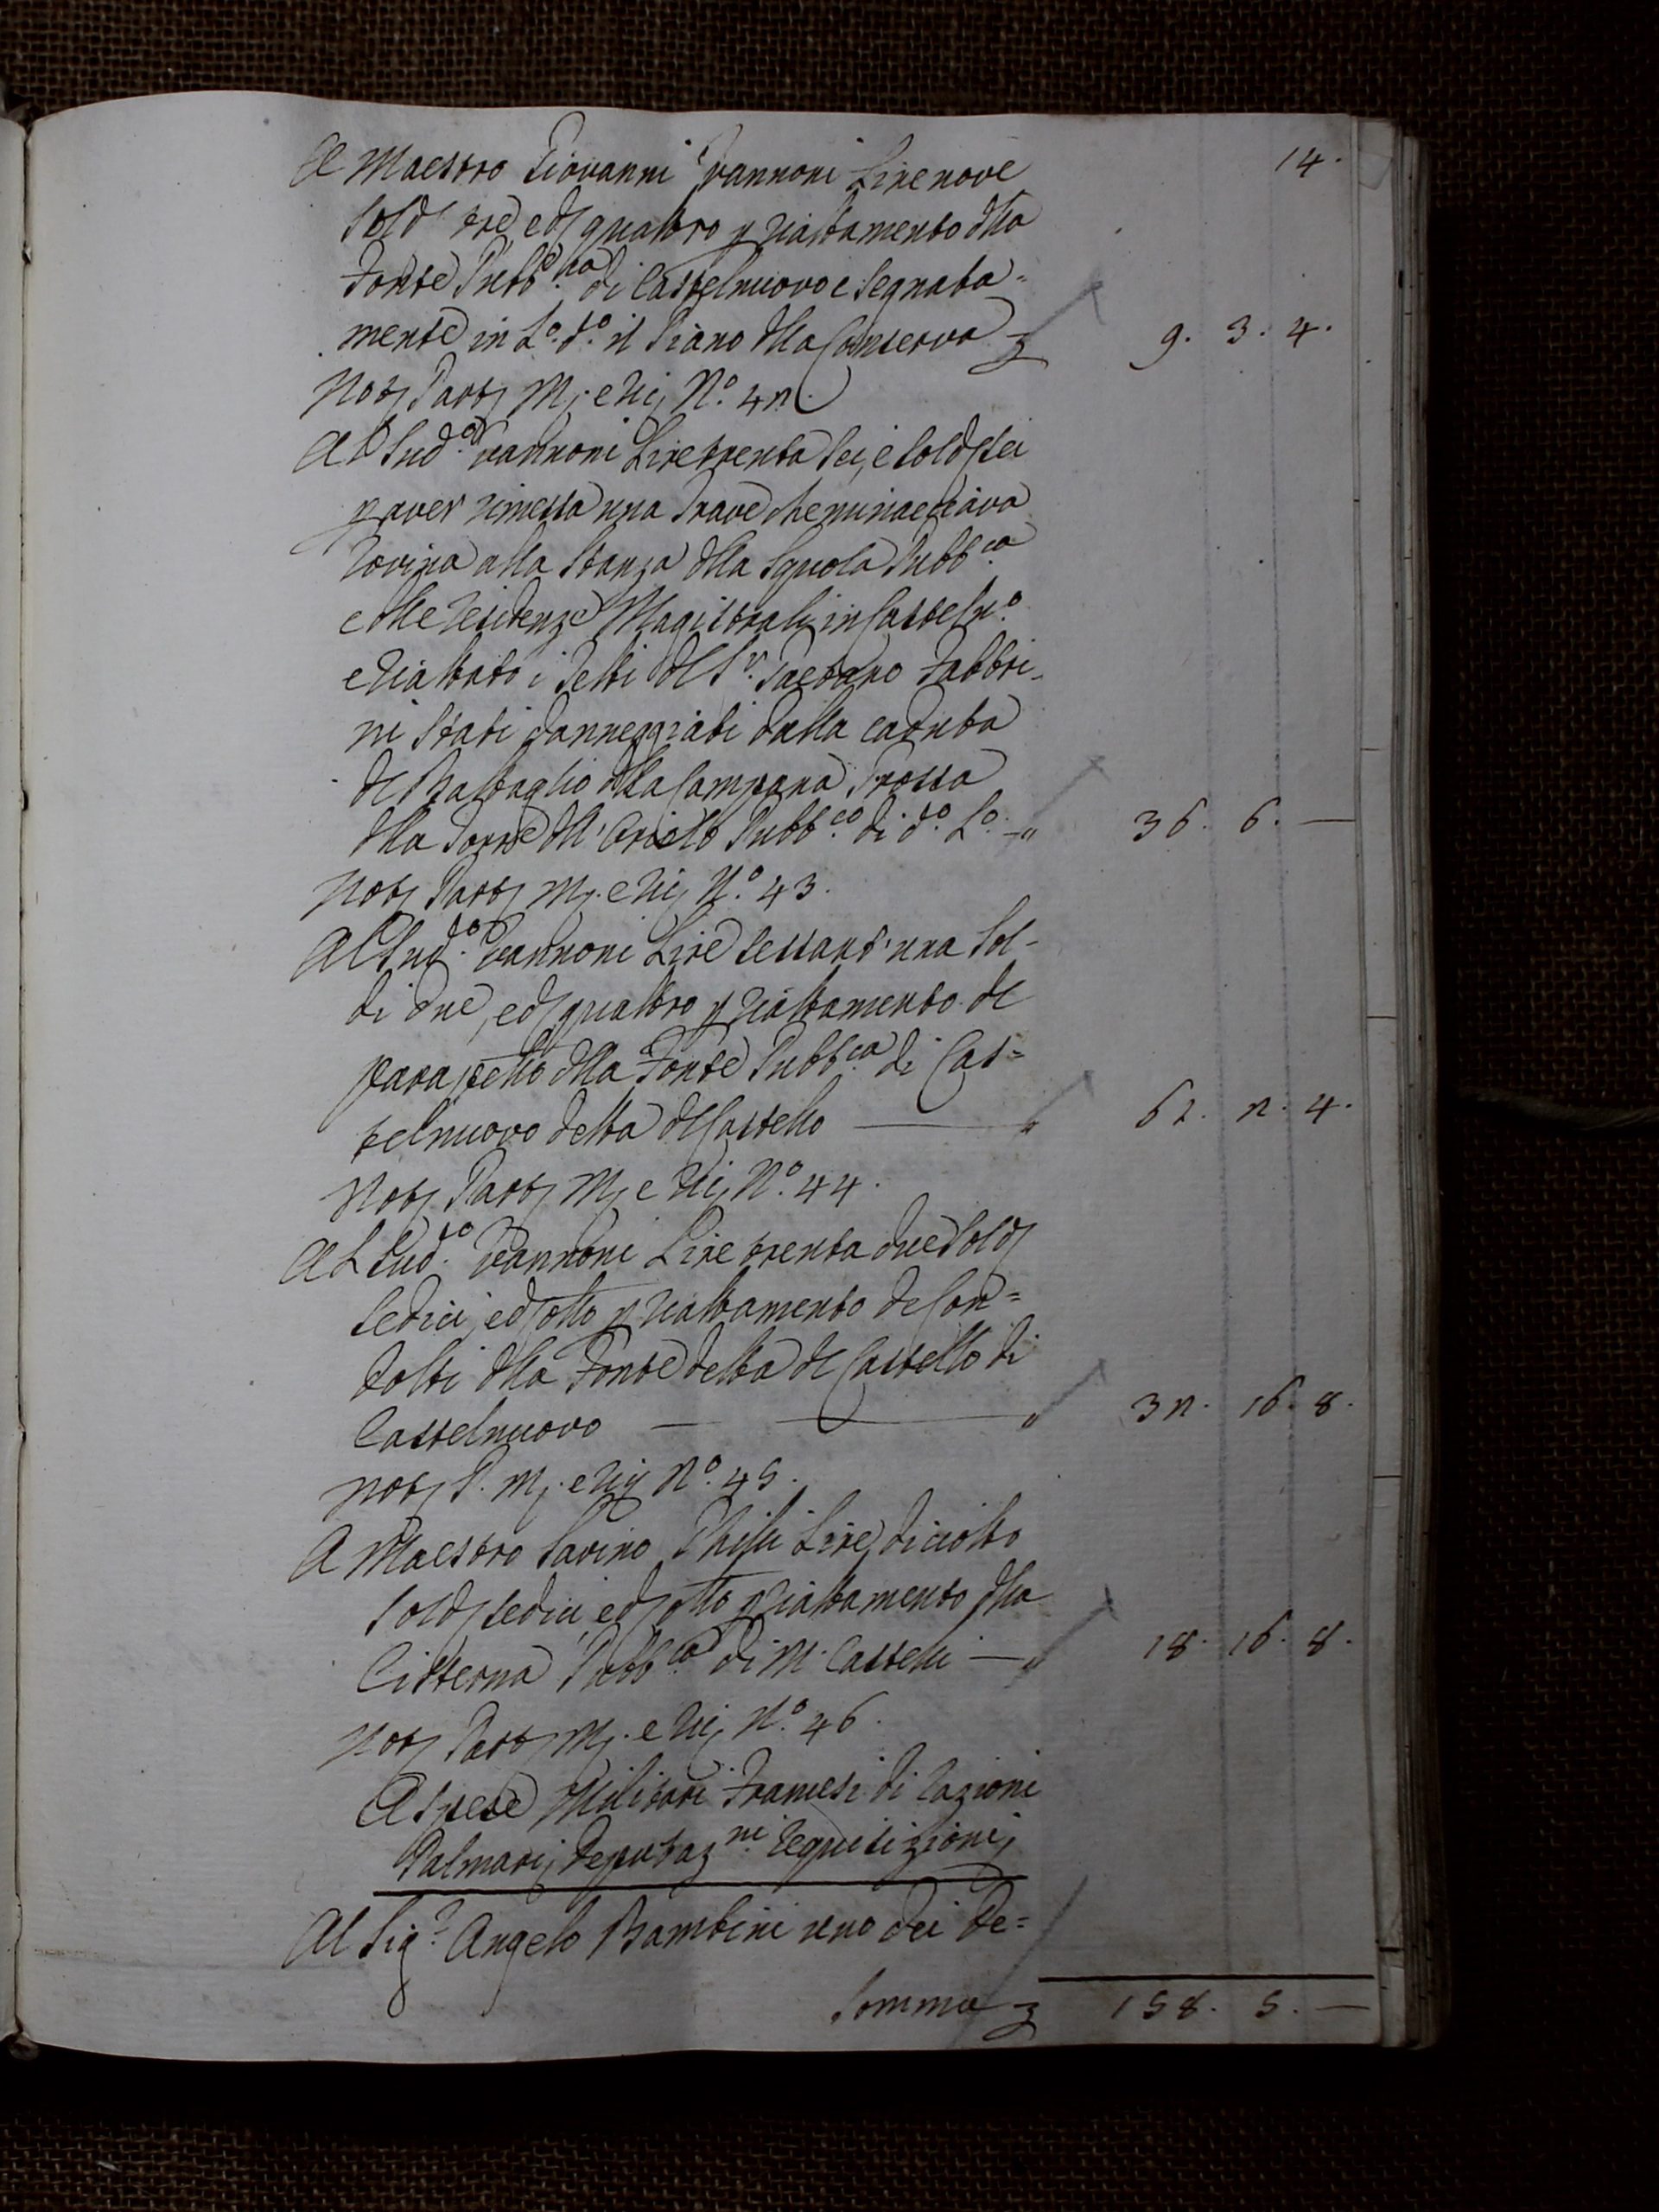 14.
A Maestro Giovanni Vannoni Lire nove
Sold tre e d quattro p riattamento dlla
Fonte Pubb.ca di Castelnuovo e segnata=
mente in L.o d.o il Piano dlla Conserva 9. 3. 4.
Not Part M. e Ri N.o 42
Al Sud.o Vannoni Lire trenta sei, e sold sei
p aver rimessa una Trave che minacciava
rovina alla Stanza dlla Squola Pubb.ca
e dlle Residenze Magistrali in Casteln.o
e riattato i Tetti del S.r Gaetano Fabbri-
ni stati danneggiati dalla caduta
del Battaglio dlla Campana Grossa
dlla Torre dll'Oriolo Pubb.co di d.o L.o 36. 6. —
Not Part M. e Ri N.o 43.
Al Sud.o Vannoni Lire sessant'una Sol-
di due, e d quattro p riattamento del
parapetto dlla Fonte Pubb.ca di Cas=
telnuovo detta del Castello — 61. 2. 4.
Not Part M. e Ri N.o 44.
Al Sud.o Vannoni Lire trenta due Sold
sedici, e d otto p riattamento de Con=
dotti dlla Fonte detta del Castello di
Castelnuovo — 32. 16. 8.
Not P. M. e Ri N.o 45.
A Maestro Savino Lire diciotto
Sold sedici, e d otto p riattamento dlla
Cisterna Pubb.ca di M. Castelli — 18. 16. 8.
Not Part M. e Ri N.o 46.
A spese Militari Francesi di razioni
Palmari, Deputaz.ni Requisizioni,
Al Sig.r Angelo Bambini uno dei De=
Somma 158. 5. —